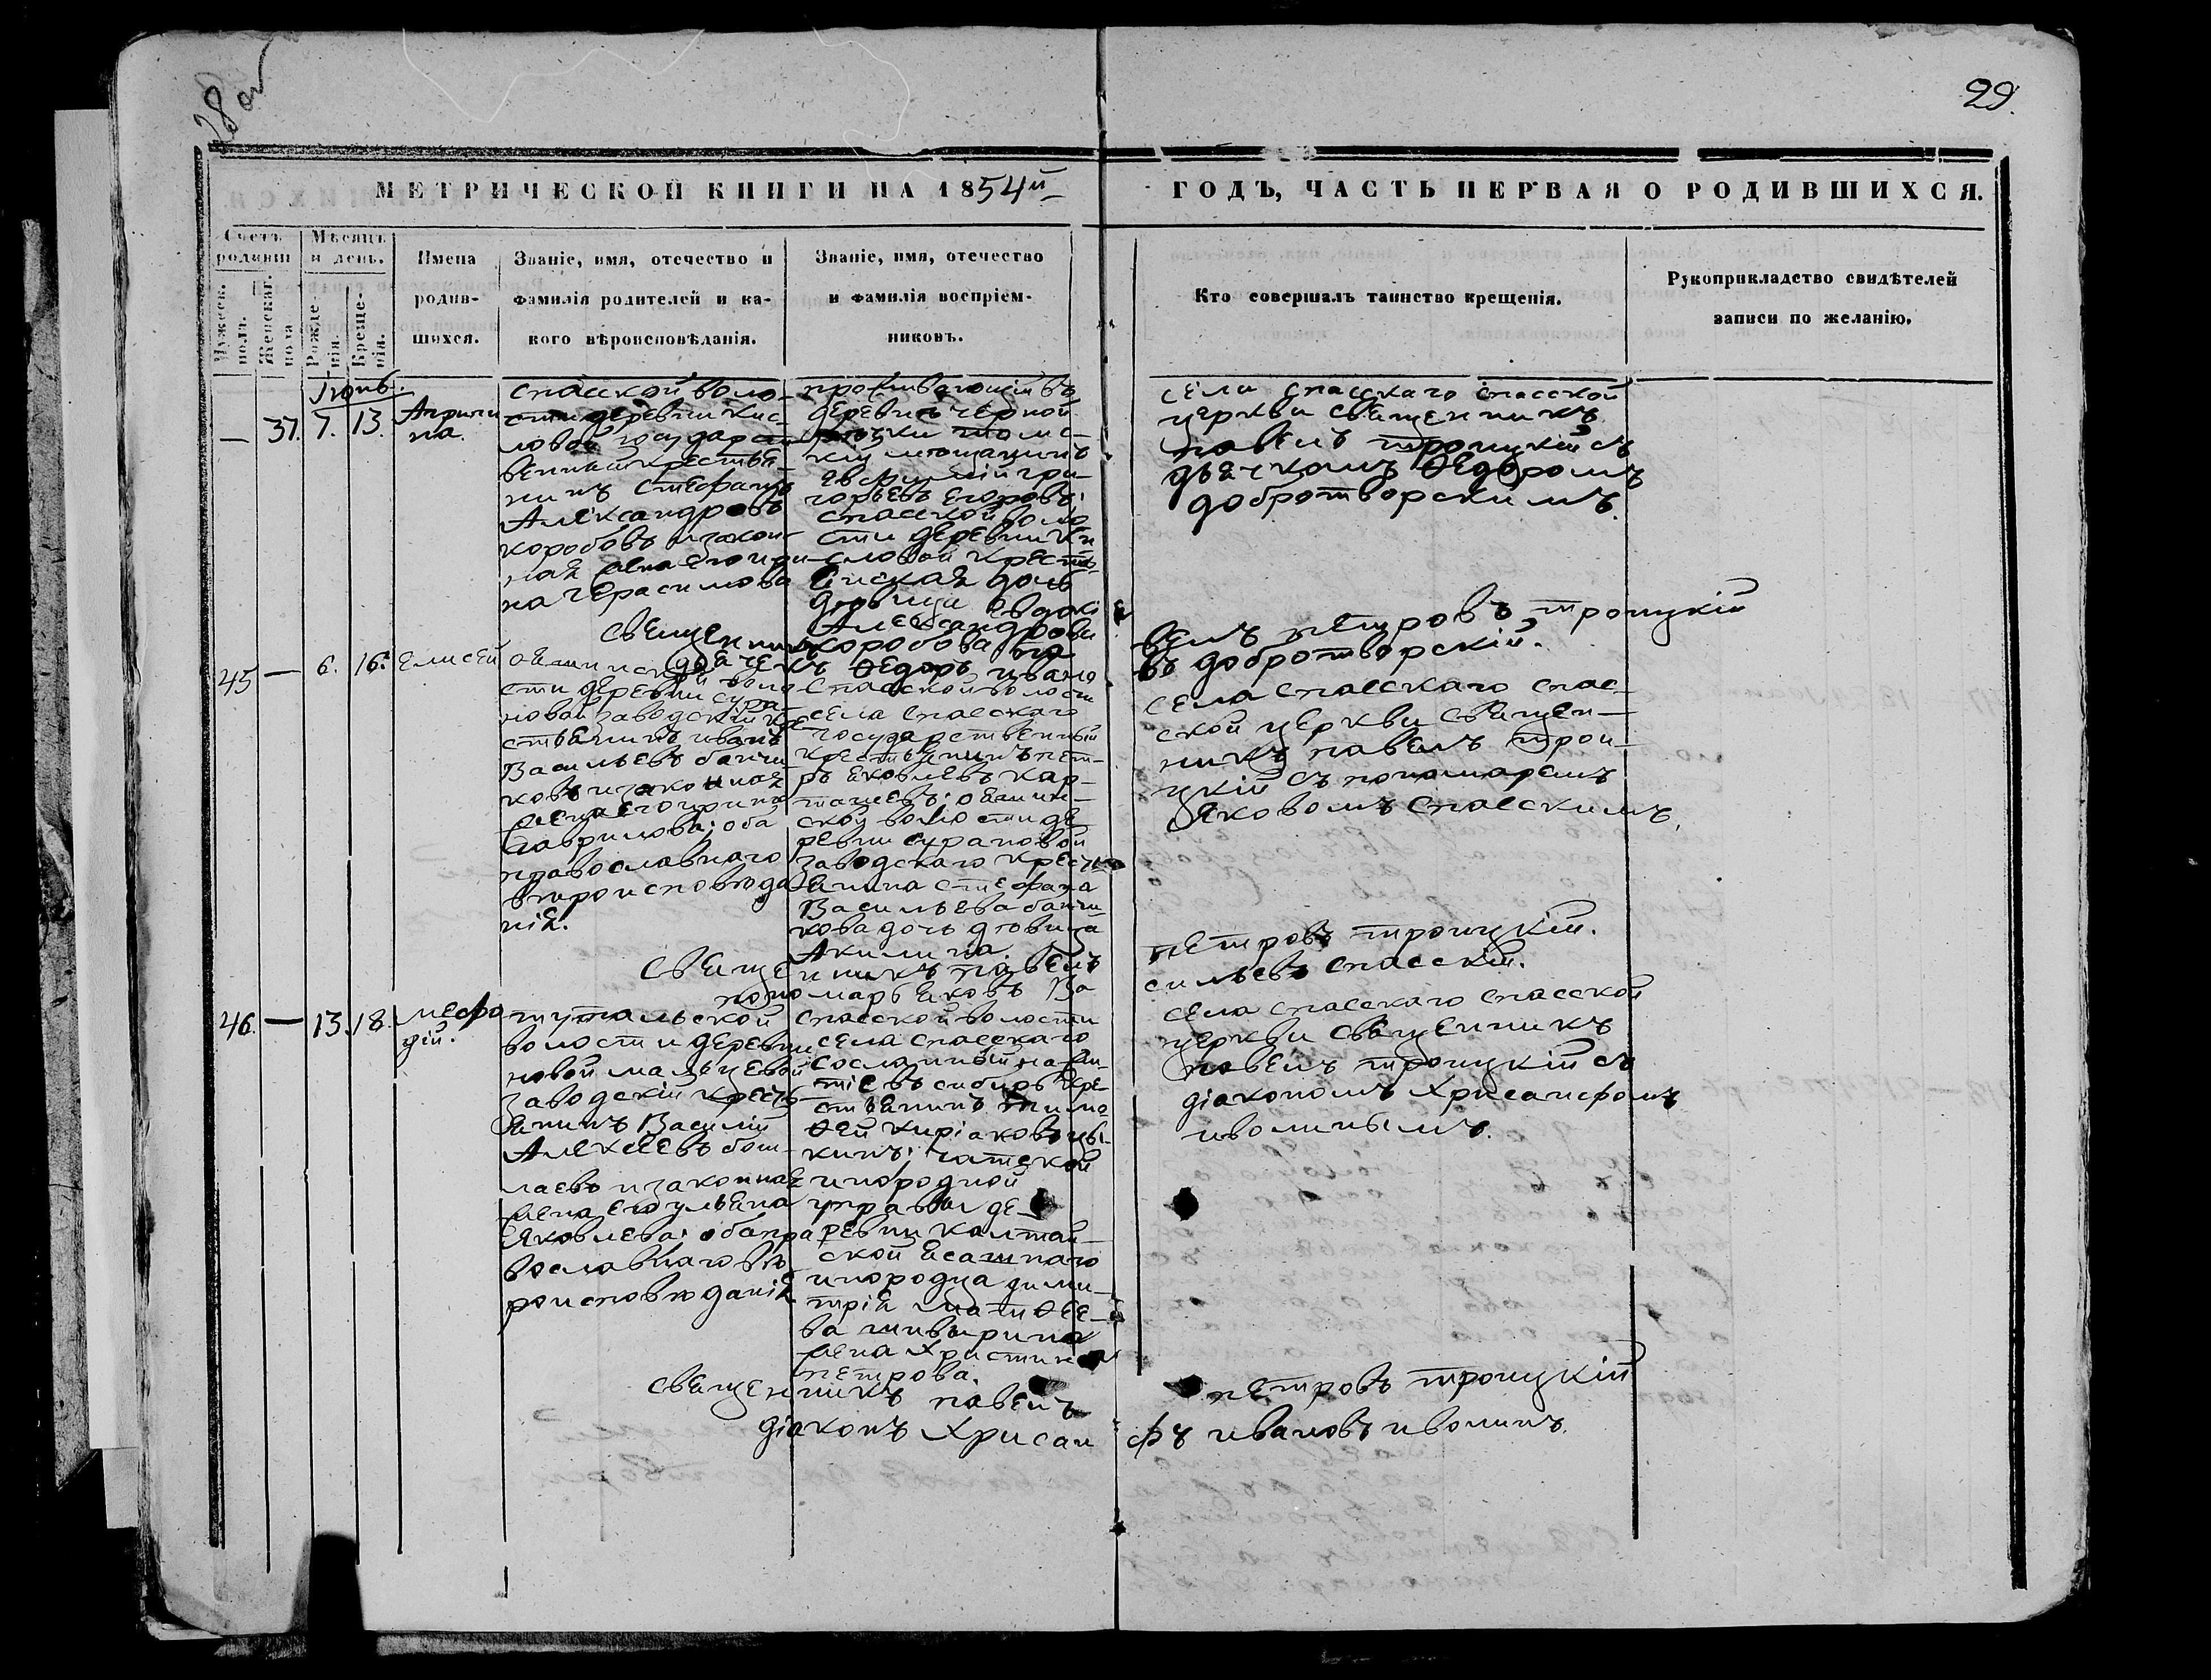 28 об
29.
МЕТРИЧЕСКОЙ КНИГИ НА 1854й
ГОДЪ, ЧАСТЬ ПЕРВАЯ О РОДИВШИХСЯ.
Счетъ родивш
Мужеск. пола.
Женскаг. пола
Мѣсяцъ и день.
Рожде-
нія.
Креще-
нія.
Имена
родив-
шихся.
Званіе, имя, отечество и
фамилія родителей и ка-
кого вѣроисповѣданія.
Званіе, имя, отечество
и фамилія воспріем-
никовъ.
Кто совершалъ таинство крещенія.
Рукоприкладство свидѣтелей
записи по желанію.
— 37. 7. 13.
Агрипи
на.
спасской воло-
сти деревни Кис-
ловой государст
венный крестья-
нинъ Стефанъ
Александровъ
Коробовъ и закон-
ная жена его Ири-
на Герасимова
проживающій въ
деревнѣ черной
рѣчки томс-
кій мѣщанинъ
Евфимій Гри-
горьевъ Егоровъ;
спасской воло
сти деревни Ки
словой кресть-
янская дочь
дѣвица Евдокі
Александрова
Коробова
села Спасскаго Спасской
церкви священникъ
Павелъ Троицкій съ
дьячкомъ Ѳедоромъ
Добротворскимъ.
священникъ Па
велъ Петровъ Троицкій
дьячекъ Ѳедоръ Ивано
въ Добротворскій.
45 — 6. 16.
Елисей
ояшинской воло
сти деревни Сура-
новой заводскій кре
стьянинъ Иванъ
Васильевъ Банщи
ковъ и законная
жена его Ирина
Гаврилова; оба
православнаго
вѣроисповѣда
нія.
Спасской волости
села Спасскаго
государственный
крестьянинъ Пет-
ръ Яковлевъ Кар-
ташевъ; ояшин-
ской волости де
ревни Сурановой
заводскаго кресть
янина Стефана
Васильева Банщи
кова дочь дѣвица
Акилина.
села Спасскаго Спас-
ской церкви священ-
никъ Павелъ Трои-
цкій съ пономаремъ
Яковомъ Спасскимъ.
священникъ Павелъ
Петровъ Троицкій.
пономарь Яковъ Ва
сильевъ Спасскій.
46. — 13. 18.
Мефо
дій.
тутальской
волости деревни
новой мальцевой
заводскій кресть
янинъ Василій
Алексѣевъ
и законная
жена его Ульяна
Яковлева; оба пра
вославнаго вѣ
роисповѣданія
спасской волости
села Спасскаго
сосланный на жи
тіе въ сибирь кре
стьянинъ Тимо
ѳей Киріаковъ
чатской
инородной
управы де
ревни Калтай-
ской ясашнаго
инородца Дими-
трія Матѳее-
ва
жена Христина
Петрова.
села Спасскаго Спасской
церкви священникъ
Павелъ Троицкій съ
діакономъ Хрисанфомъ
Иволинымъ.
священникъ Павелъ
Петровъ Троицкій
діаконъ Хрисан
фъ Ивановъ Иволинъ.